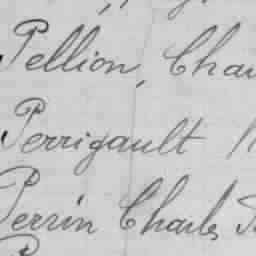 Pellion, Char
Perrigault
Perrin Charles